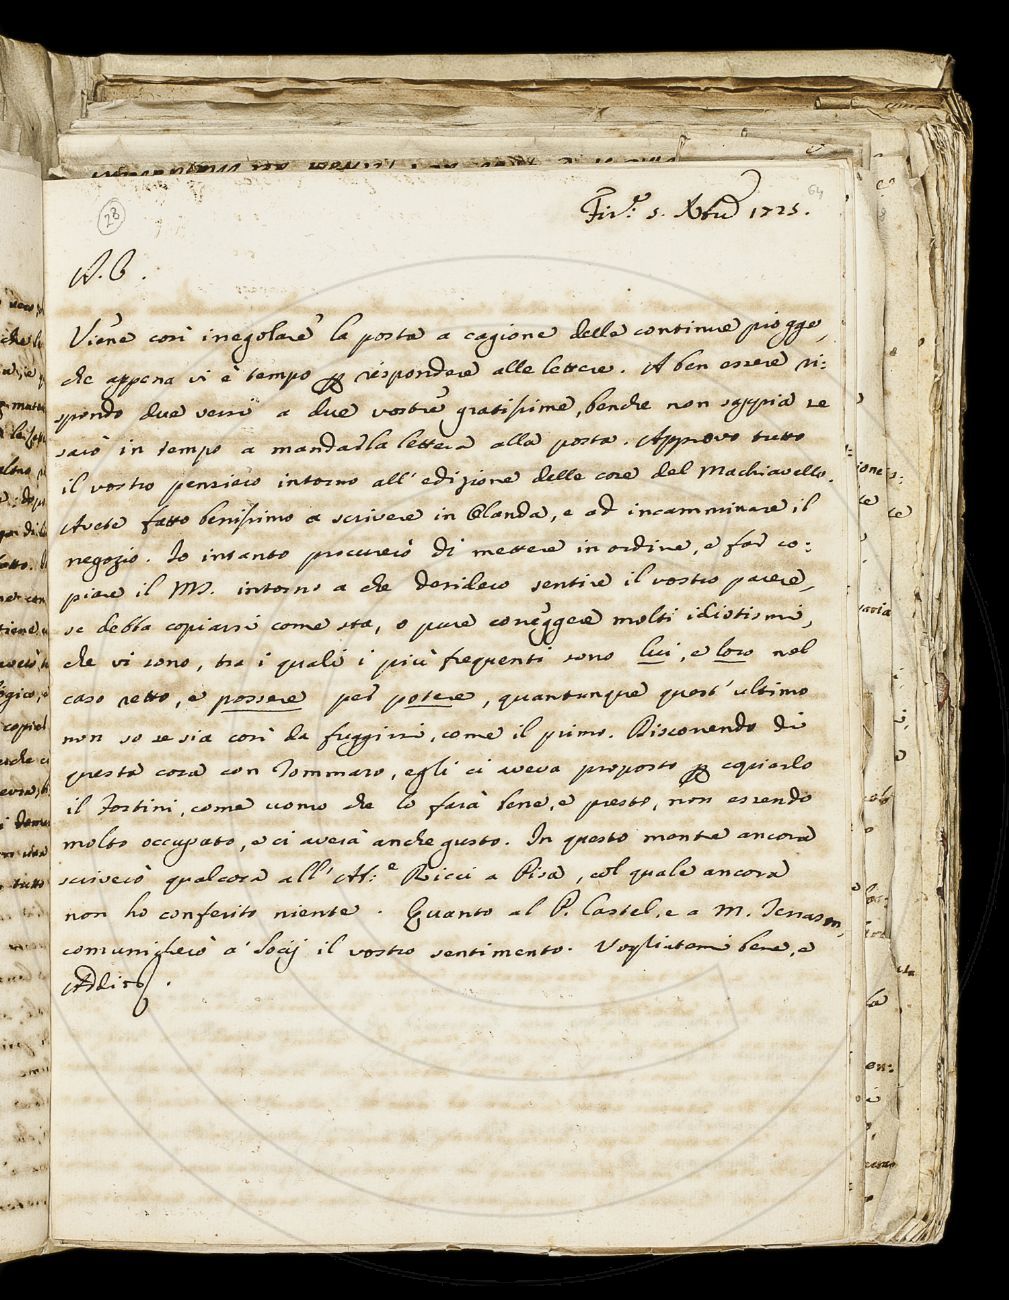 28
64
Fir.e 5. Xbre 1725.
A. C.
Viene così inegolare la posta a cagione delle continue piogge,
che appena vi è tempo p rispondere alle lettere. A ben essere ri:
spondo due versi a due vostre gratissime, benche non sappia se
sarò in tempo a mandar la lettera alla posta. Approvo tutto
il vostro pensiero intorno all' edizione delle cose del Machiavello.
Avete fatto benissimo a scrivere in Olanda, e ad incamminare il
negozio. Io intanto procurerò di mettere in ordine, e far co:
piare il MS. intorno a che desidero sentire il vostro parere,
se debba copiarsi come sta, o pure coreggere molti idiotismi,
che vi sono, tra i quali i più frequenti sono lui, e loro nel
caso retto, e possere per potere, quantunque quest' ultimo
non so se sia così da fuggirsi, come il primo. Discorrendo di
questa cosa con Tommaso, egli ci aveva proposto p copiarlo
il Tortini, come uomo che lo farà bene, e presto, non essendo
molto occupato, e ci averà anche gusto. In questo mentre ancora
scriverò qualcosa all' Ab:e Ricci a Pisa, col quale ancora
non ho conferito niente. Quanto al P. Castel, e a M. Terrasson,
comunicherò a' Socij il vostro sentimento. Vogliatemi bene, e
Addio.